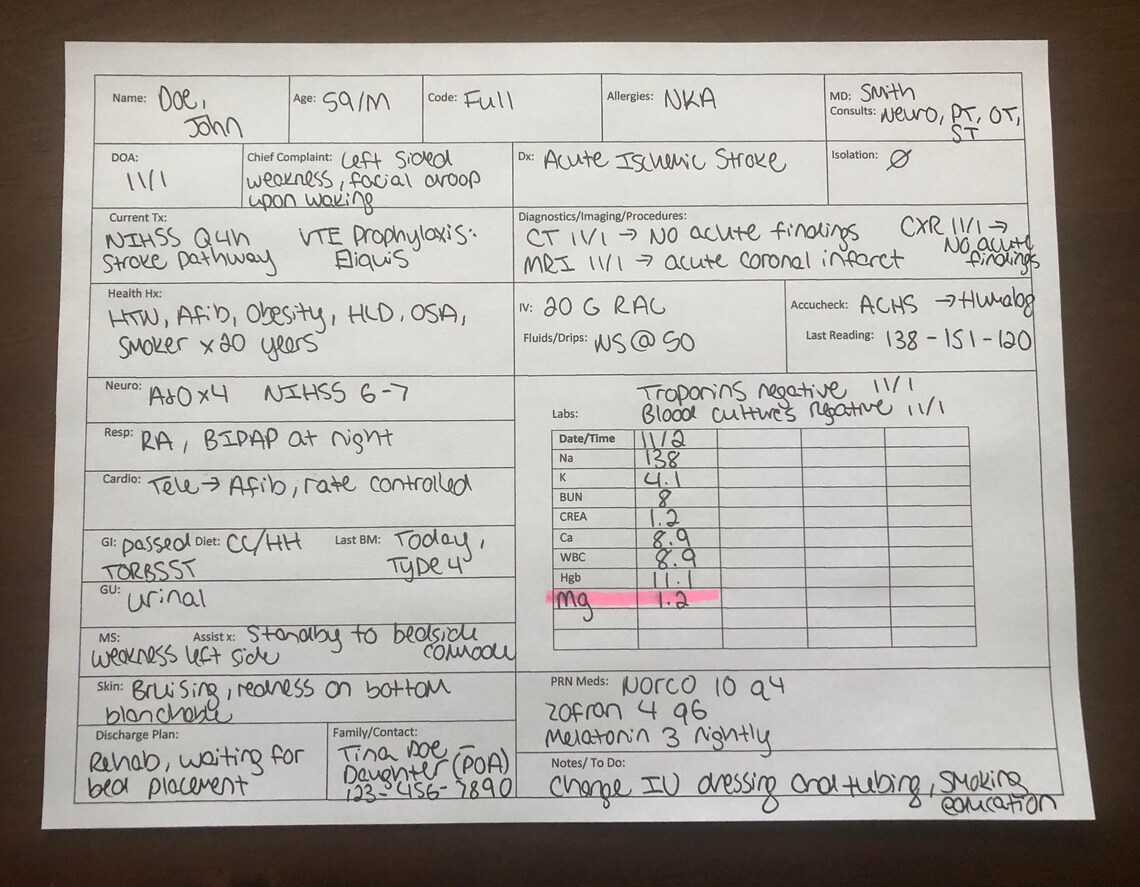 Name: Doe, John
Age: 59/M
Code: Full
Allergies: NKA
MD: Smith
Consults: Neuro, PT, OT, ST
DOA: 11/1
Chief Complaint: Left sided
weakness, facial droop
upon waking
Dx: Acute Ischemic Stroke
Isolation: Ø
Current Tx:
NIHSS Q4h
Stroke pathway
VTE Prophylaxis:
Eliquis
Diagnostics/Imaging/Procedures:
CT 11/1 → No acute findings
MRI 11/1 → acute coronal infarct
CXR 11/1 →
No acute
findings
Health Hx:
HTN, Afib, Obesity, HLD, OSA,
Smoker x20 years
IV: 20 G RAC
Fluids/Drips: NS @ 50
Accucheck: ACHS → Humalog
Last Reading: 138 - 151 - 120
Neuro: A&O x4 NIHSS 6-7
Resp: RA, BIPAP at night
Cardio: Tele → Afib, rate controlled
GI: passed
TORBSST
Diet: CC/HH
Last BM: Today,
Type 4
GU: urinal
MS: weakness left side
Assist x: Standby to bedside
comode
Skin: Bruising, redness on bottom
blanchable
Discharge Plan:
Rehab, waiting for
bed placement
Family/Contact:
Tina Doe
Daughter (POA)
123-456-7890
Troponins negative 11/1
Labs: Blood cultures negative 11/1
Date/Time 11/2
Na 138
K 4.1
BUN 8
CREA 1.2
Ca 8.9
WBC 8.9
Hgb 11.1
Mg 1.2
PRN Meds: Norco 10 q4
Zofran 4 q6
Melatonin 3 nightly
Notes/ To Do:
Change IV dressing and tubing, smoking
education